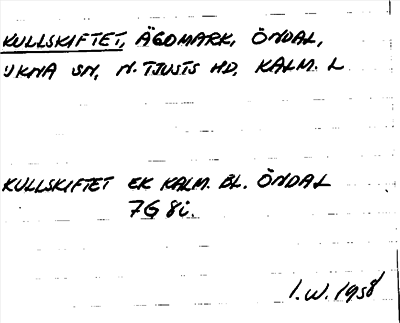 KULLSKIFTET, ÄGOMARK, ÖNDAL,
UKNA SN, N. TJUSTS HD, KALM. L
KULLSKIFTET EK KALM. BL. ÖNDAL
7G 8i.
I.W. 1958